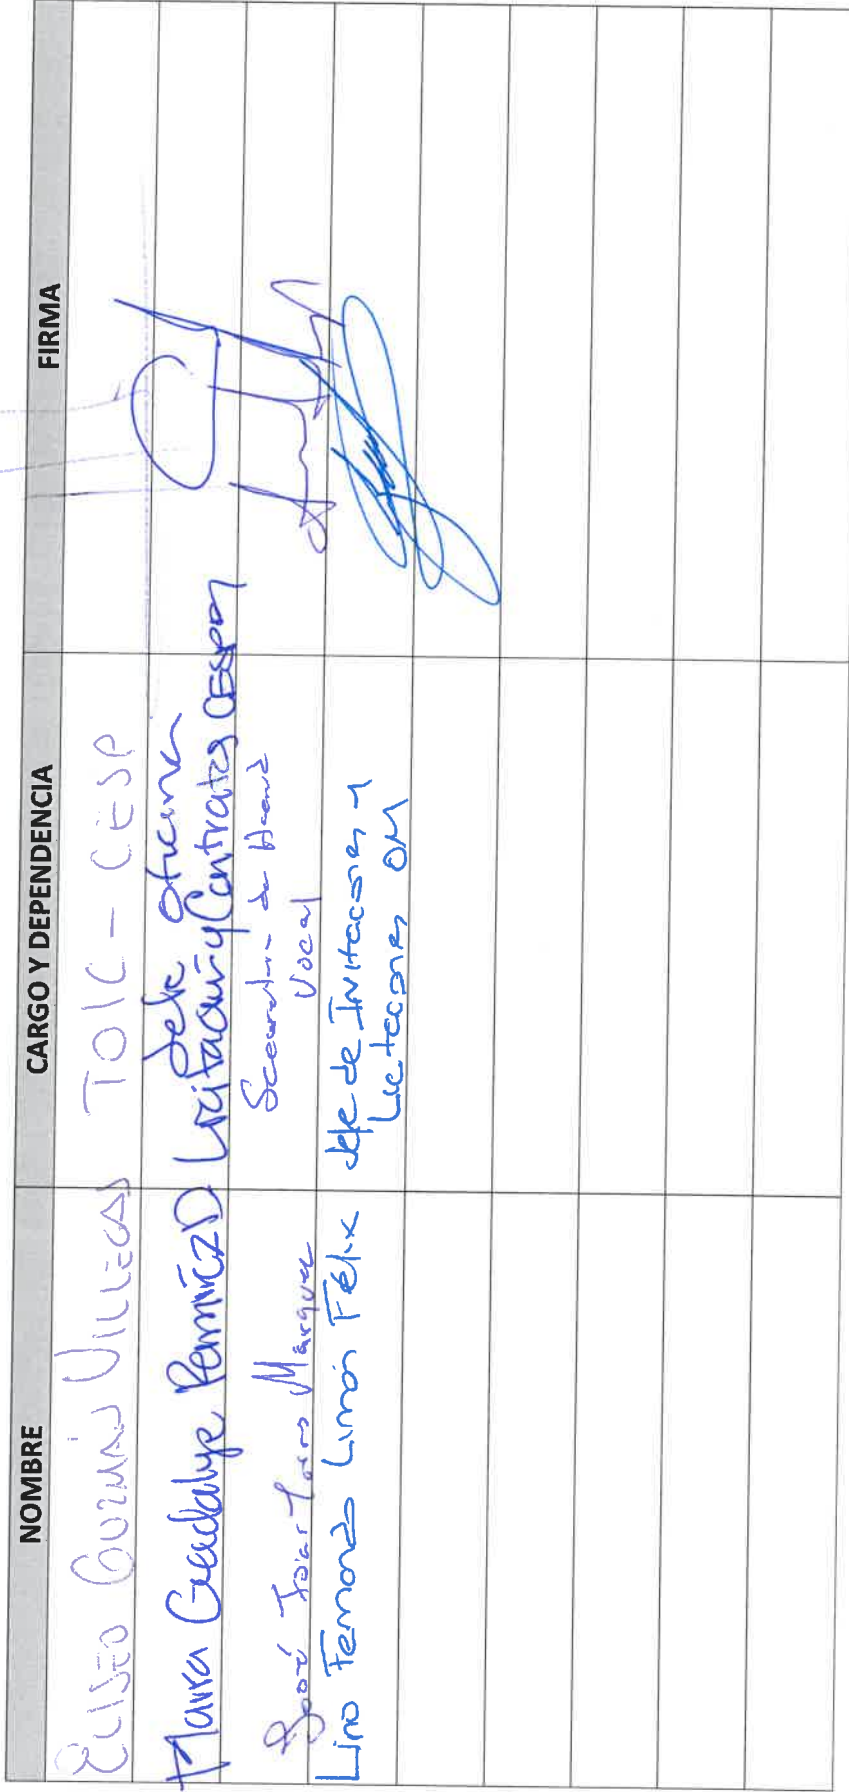 NOMBRE CARGO Y DEPENDENCIA FIRMA
Eliseo Guzmán Villegas TOIC - CESP
Jefe Oficina
Maira Guadalupe Ramírez D Licitación y Contratos CESPM
José Marquez Secretaria de Hacienda
Vocal
Lino Fernando Limón Félix Jefe de Invitaciones y
Licitaciones OM